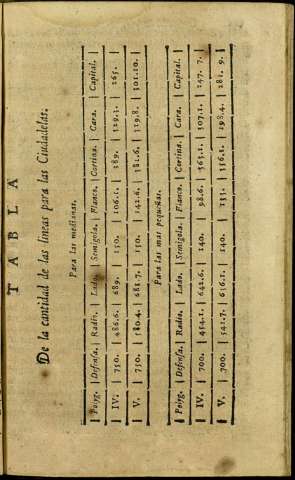 TABLA
De la cantidad de las lineas para las Ciudadelas.
Para las medianas.
Polyg. | Defensa. | Radio. | Lado. | Semigola. | Flanco. | Cortina. | Cara. | Capital.
IV. | 750. | 486.6. | 689. | 150. | 106.1. | 389. | 329.3. | 265.
V. | 750. | 580.4. | 681.7. | 150. | 142.6. | 381.6. | 319.8. | 301.10.
Para las mas pequeñas.
Polyg. | Defensa. | Radio. | Lado. | Semigola. | Flanco. | Cortina. | Cara. | Capital.
IV. | 700. | 454.1. | 642.6. | 140. | 98.6. | 363.1. | 307.1. | 247. 7.
V. | 700. | 541.7. | 636.1. | 140. | 133. | 356.1. | 298.4. | 281. 9.